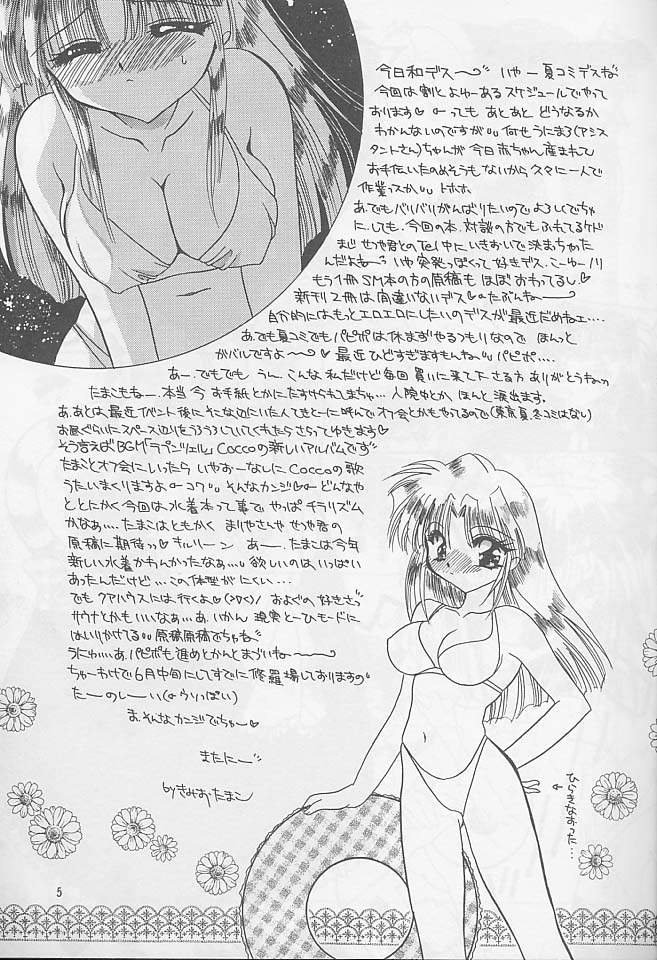 今日和デス〜 いやー夏コミデスね
今回は割とよゆーあるスケジュールでやって
おります ーっても あとあと どうなるか
わかんないのですが 何せうにまろ(アシス
タントさん)ちゃんが今日赤ちゃん産まれて
お手伝いたのめそうもないから久々に一人で
作業っスか トホホ
あ、でもバリバリがんばりたいのでよろしくでちゃ
にしても、今回の本、対談の方でもふれてるケド
まじせつや君とのTel中にいきおいで決まっちゃった
んだよねー いや突発っぽくって好きデス こーゆーノリ
もう1冊SM本の方の原稿もほぼおわってるし
新刊2冊は間違いないデス♡たぶんねー
自分的にはもっとエロエロにしたいのデスが最近だめねェ....
あ、でも夏コミでもパピポは休まずやるつもりなので ほんっと
ガバルですよ〜♡ 最近ひどすぎますもんね パピポ....
あー、でもでも うんー こんな私だけど毎回買いに来て下さる方ありがとうねっ
たまこもねー、本当今お手紙とかにたすけられこまちゃ…人院ゆとか、ほんと
あ、あとは、最近イベント後にそこな辺にいた人てきとーに呼んでオフ会とかもやってるので(東京夏、冬コミはなし)
お暇ぐらいたスペース辺りをうろうろしていてくれたらさらってゆきます♡
そう言えばBGM「ラプンツェル」Coccoの新しいアルバムです
たまことオフ会にいったら いやおーなしにCoccoの歌
うたいまくりますよーコワ そんなカンジ♡ー どんなや
ととにかく今回は水着本って事で やっぱチラリズム
かなぁ…、たまこはともかく まりやさんや せつや君の
原稿に期待っ♡キルリーン あー、たまこは今年
新しい水着かわんかったなぁ 欲しいのはいっぱい
あったんだけど…この体型がにくい…
でもクアハウスには行くよ♡ およぐの好きさっ
サウナとかもいいなぁ…あ、いかん 現実とーひモードに
はいりかけてる 原稿原稿でちゃね
うにゅ…あ、パピポも進めとかんとまづいね〜
ちゅーわけで6月中旬にしてすでに修羅場しておりますの
たーのしーい(ようりいぱい)
ま、そんなカンジでちゃー♡
またにー
byきみおたまこ
ひらきなおった…
5